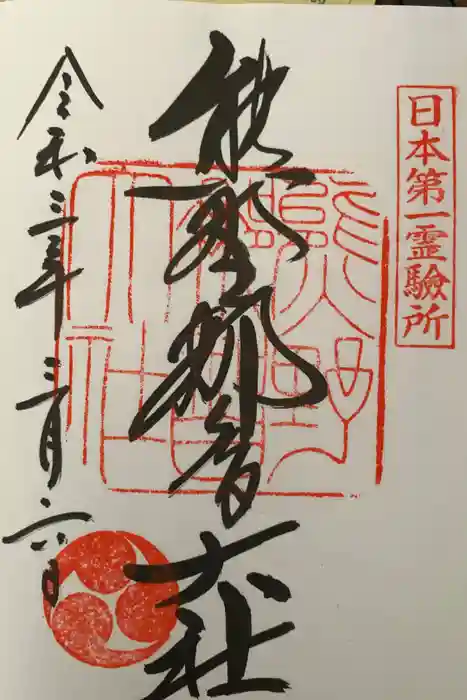 日本第一霊驗所
熊野那智大社
熊野
那智
大社
令和三年三月六日